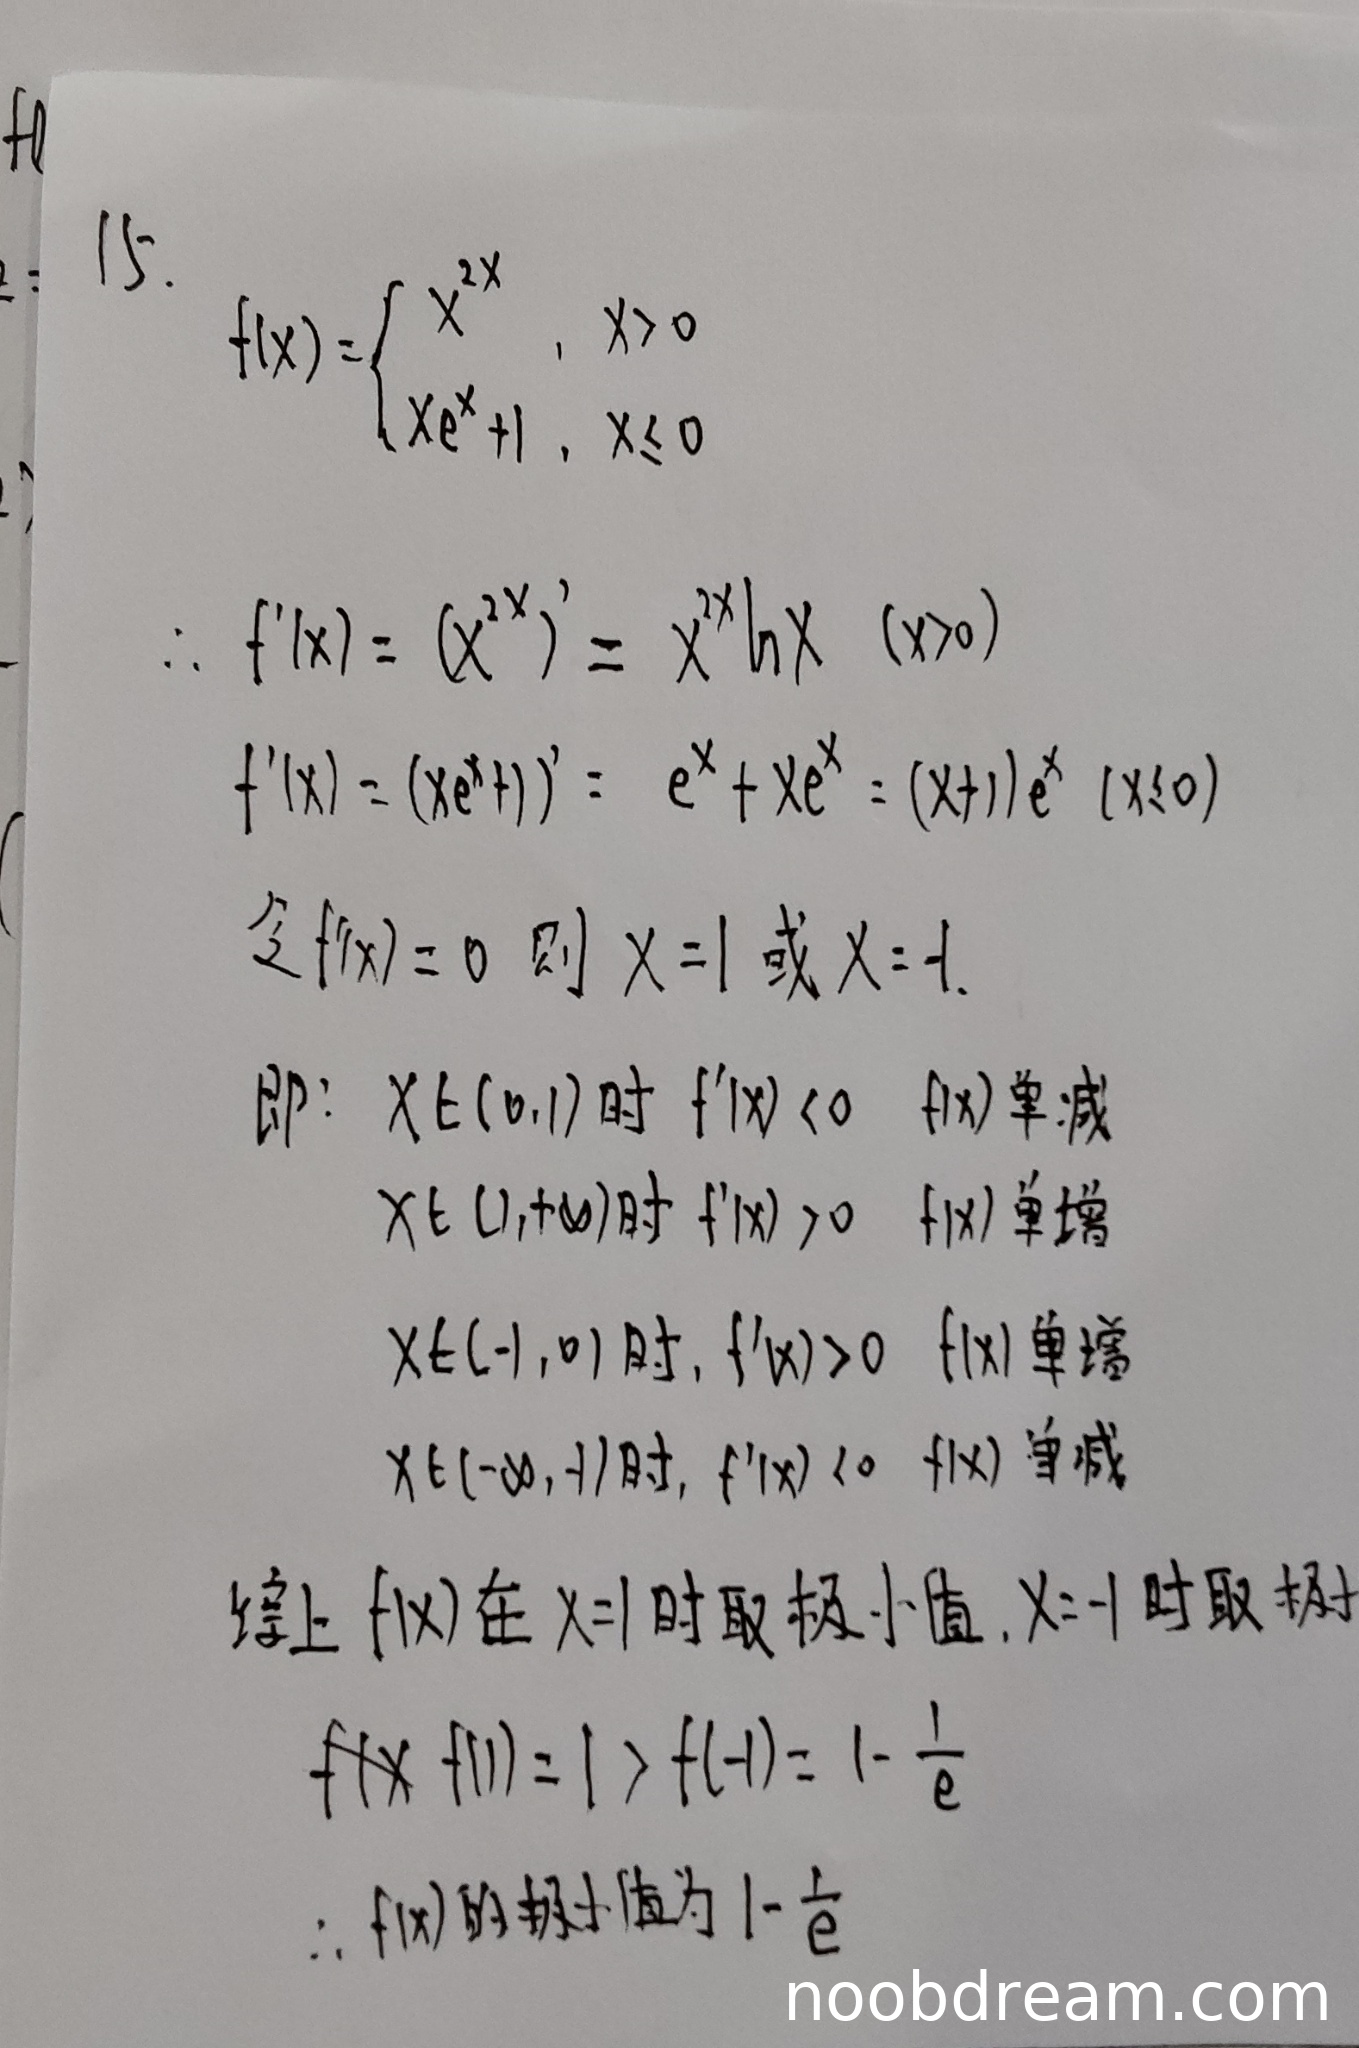 15.
f(x) = { x^{2x} , x > 0
xe^x + 1 , x ≤ 0
∴ f'(x) = (x^{2x})' = x^{2x} ln x (x>0)
f'(x) = (xe^x+1)' = e^x + xe^x = (x+1)e^x (x≤0)
令f'(x) = 0 则 x = 1 或 x = -1.
即: x∈(0,1) 时 f'(x) < 0 f(x) 单减
x∈(1,+∞) 时 f'(x) > 0 f(x) 单增
x∈(-1,0) 时, f'(x) > 0 f(x) 单增
x∈(-∞,-1) 时, f'(x) < 0 f(x) 单减
综上 f(x) 在 x=1 时取极小值. x=-1 时取极小
f(1) = 1 > f(-1) = 1 - \frac{1}{e}
∴ f(x) 的极小值为 1 - \frac{1}{e}
noobdream.com